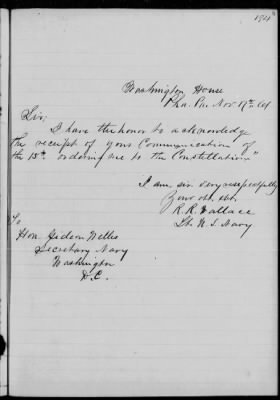 194
Washington House
Pha. Pa. Nov 17th 61
Sir;
I have the honor to acknowledge
the receipt of your Communication of
the 15th ordering me to the Constellation"
I am, sir very respectfully
Your obt. svt.
R. R. Wallace
Lt. U. S. Navy
To
Hon. Gideon Welles
Secretary Navy
Washington
D.C.